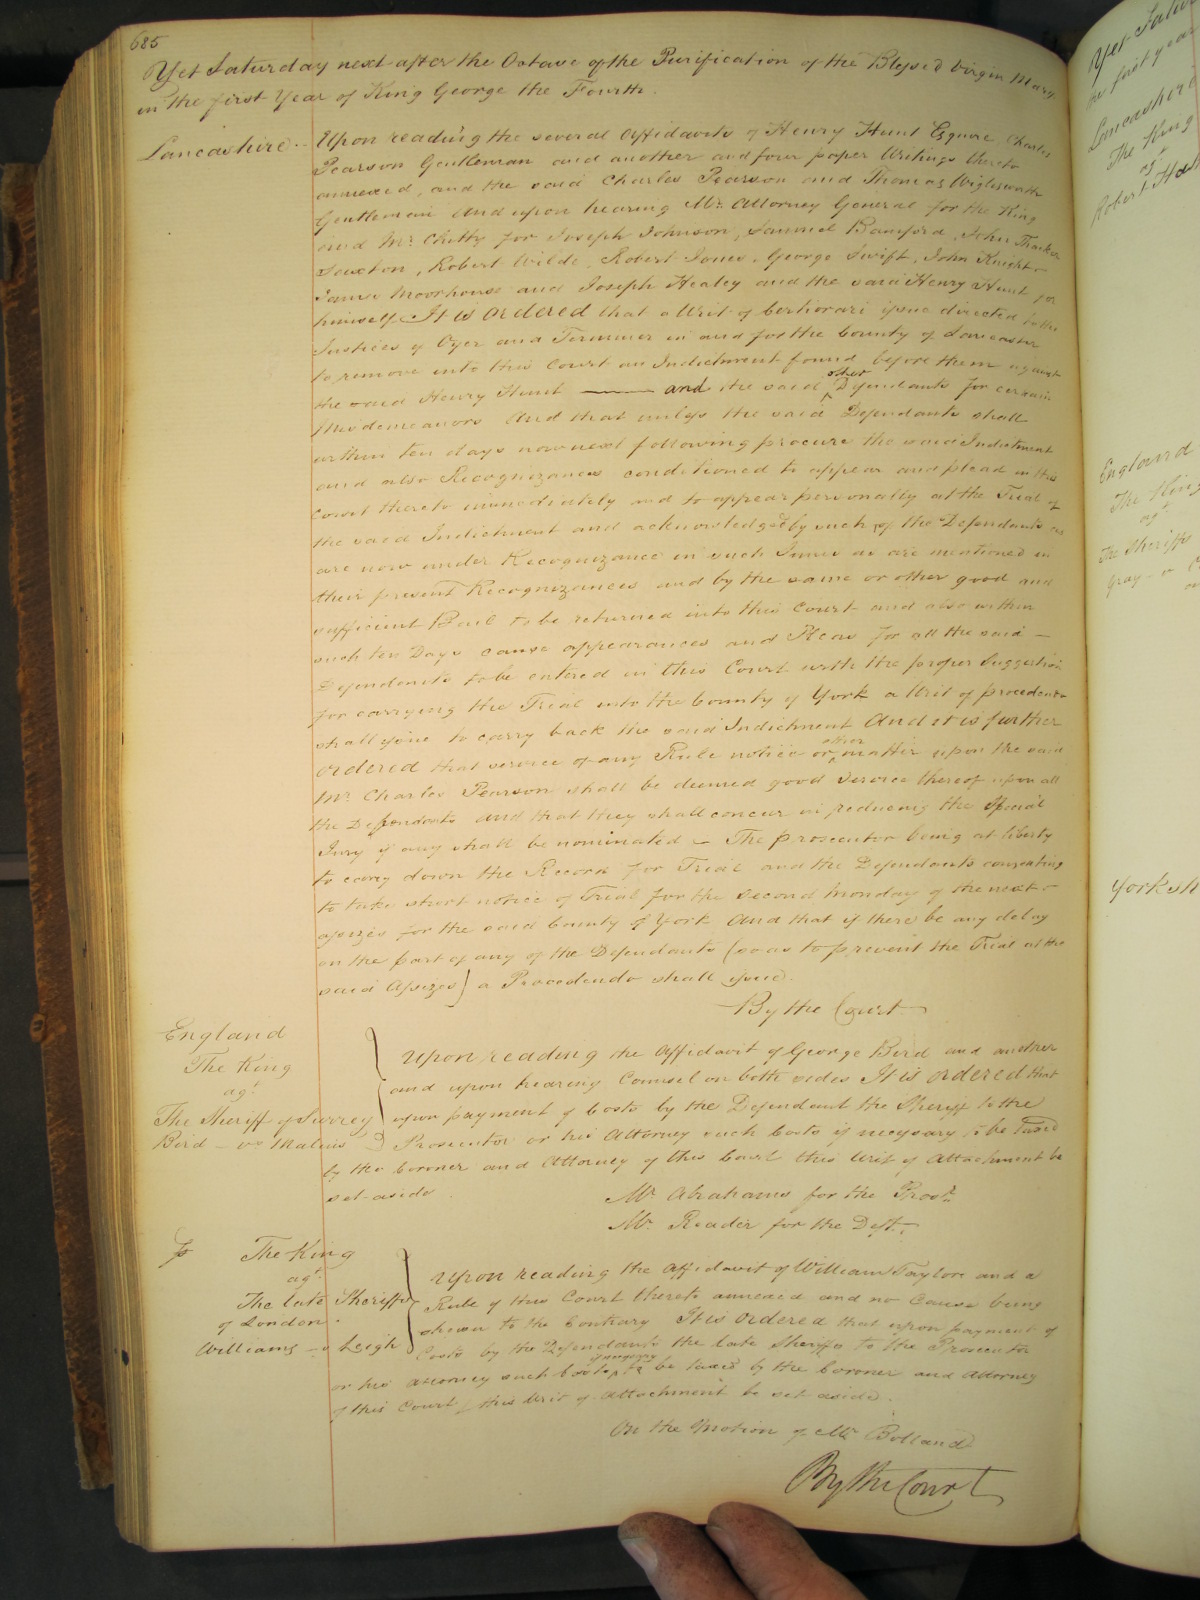 685
Yet Saturday next after the Octave of the Purification of the Blessed Virgin Mary
in the first Year of King George the Fourth.
Lancashire. Upon reading the several Affidavits of Henry Hunt Esquire Charles
Pearson Gentleman and another and four paper Writings thereto
annexed, and the said Charles Pearson and Thomas Wiglesworth
Gentleman And upon hearing Mr. Attorney General for the King
and Mr. Chitty for Joseph Johnson, Samuel Bamford, John Thacker
Saxton, Robert Wilde, Robert Jones, George Swift, John Knight
James Moorhouse and Joseph Healey and the said Henry Hunt for
himself It is ordered that a Writ of Certiorari issue directed to the
Justices of Oyer and Terminer in and for the County of Lancaster
to remove into this Court an Indictment found before them against
the said Henry Hunt —— and the said other Defendants for certain
Misdemeanors And that unless the said Defendants shall
within ten days now next following procure the said Indictment
and also Recognizances conditioned to appear and plead in this
Court thereto immediately and to appear personally at the Trial of
the said Indictment and acknowledged by such of the Defendants as
are now under Recognizance in such Sums as are mentioned in
their present Recognizances and by the same or other good and
sufficient Bail to be returned into this Court and also within
such ten Days cause appearances and Pleas for all the said —
Defendants to be entered in this Court with the proper Suggestion
for carrying the Trial into the County of York a Writ of procedendo
shall issue to carry back the said Indictment And it is further
ordered that service of any Rule notice or other matter upon the said
Mr. Charles Pearson shall be deemed good Service thereof upon all
the Defendants and that they shall concur in reducing the Special
Jury if any shall be nominated — The prosecutor being at liberty
to carry down the Record for Trial and the Defendants consenting
to take short notice of Trial for the second Monday of the next —
assizes for the said County of York And that if there be any delay
on the part of any of the Defendants (so as to prevent the Trial at the
said Assizes) a Procedendo shall issue.
By the Court
England
The King
agt.
The Sheriff of Surrey
Bird — vs Malins
Upon reading the Affidavit of George Bird and another
and upon hearing Counsel on both sides It is ordered that
upon payment of Costs by the Defendant the Sheriff to the
Prosecutor or his Attorney such Costs if necessary to be Taxed
by the Coroner and Attorney of this Court this Writ of Attachment be
set aside.
Mr. Abrahams for the Prosr.
Mr. Reader for the Deft.
The King
agt.
The late Sheriffs
of London.
Williams — v Leigh
Upon reading the Affidavit of William Taylor and a
Rule of this Court thereto annexed and no Cause being
shewn to the Contrary It is ordered that upon payment of
Costs by the Defendants the late Sheriffs to the Prosecutor
or his Attorney such Costs if necessary to be taxed by the Coroner and Attorney
of this Court this Writ of Attachment be set aside.
On the Motion of Mr. Bolland
By the Court
Yet Satur
the first year
Lancashire
The King
agt
Robert Has
England
The King
agt
The Sheriffs
Gray — v
Yorksh